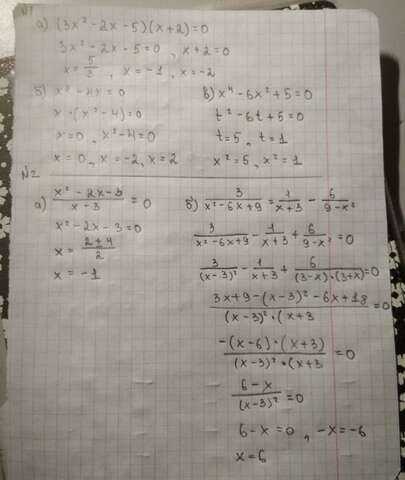 №1
а) (3x² - 2x - 5)(x + 2) = 0
3x² - 2x - 5 = 0 , x + 2 = 0
x = 5/3 , x = -1 , x = -2
б) x³ - 4x = 0
x · (x² - 4) = 0
x = 0 , x² - 4 = 0
x = 0 , x = -2, x = 2
в) x⁴ - 6x² + 5 = 0
t² - 6t + 5 = 0
t = 5 , t = 1
x² = 5 , x² = 1
№2
а) (x² - 2x - 3)/(x - 3) = 0
x² - 2x - 3 = 0
x = (2 ± 4)/2
x = -1
б) 3/(x² - 6x + 9) = 1/(x + 3) - 6/(9 - x²)
3/(x² - 6x + 9) - 1/(x + 3) + 6/(9 - x²) = 0
3/(x - 3)² - 1/(x + 3) + 6/((3 - x) · (3 + x)) = 0
(3x + 9 - (x - 3)² - 6x + 18)/((x - 3)² · (x + 3) = 0
(-(x - 6) · (x + 3))/((x - 3)² · (x + 3) = 0
(6 - x)/(x - 3)² = 0
6 - x = 0 , -x = -6
x = 6